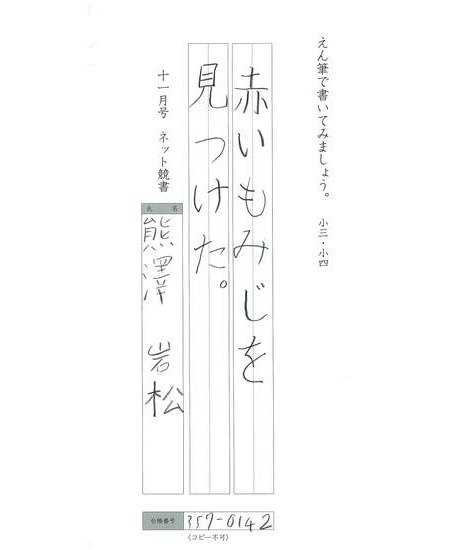 えん筆で書いてみましょう。 小三・小四
赤いもみじを
見つけた。
十一月号 ネット競書
氏名
熊澤 岩松
会員番号 357-0142
(コピー不可)